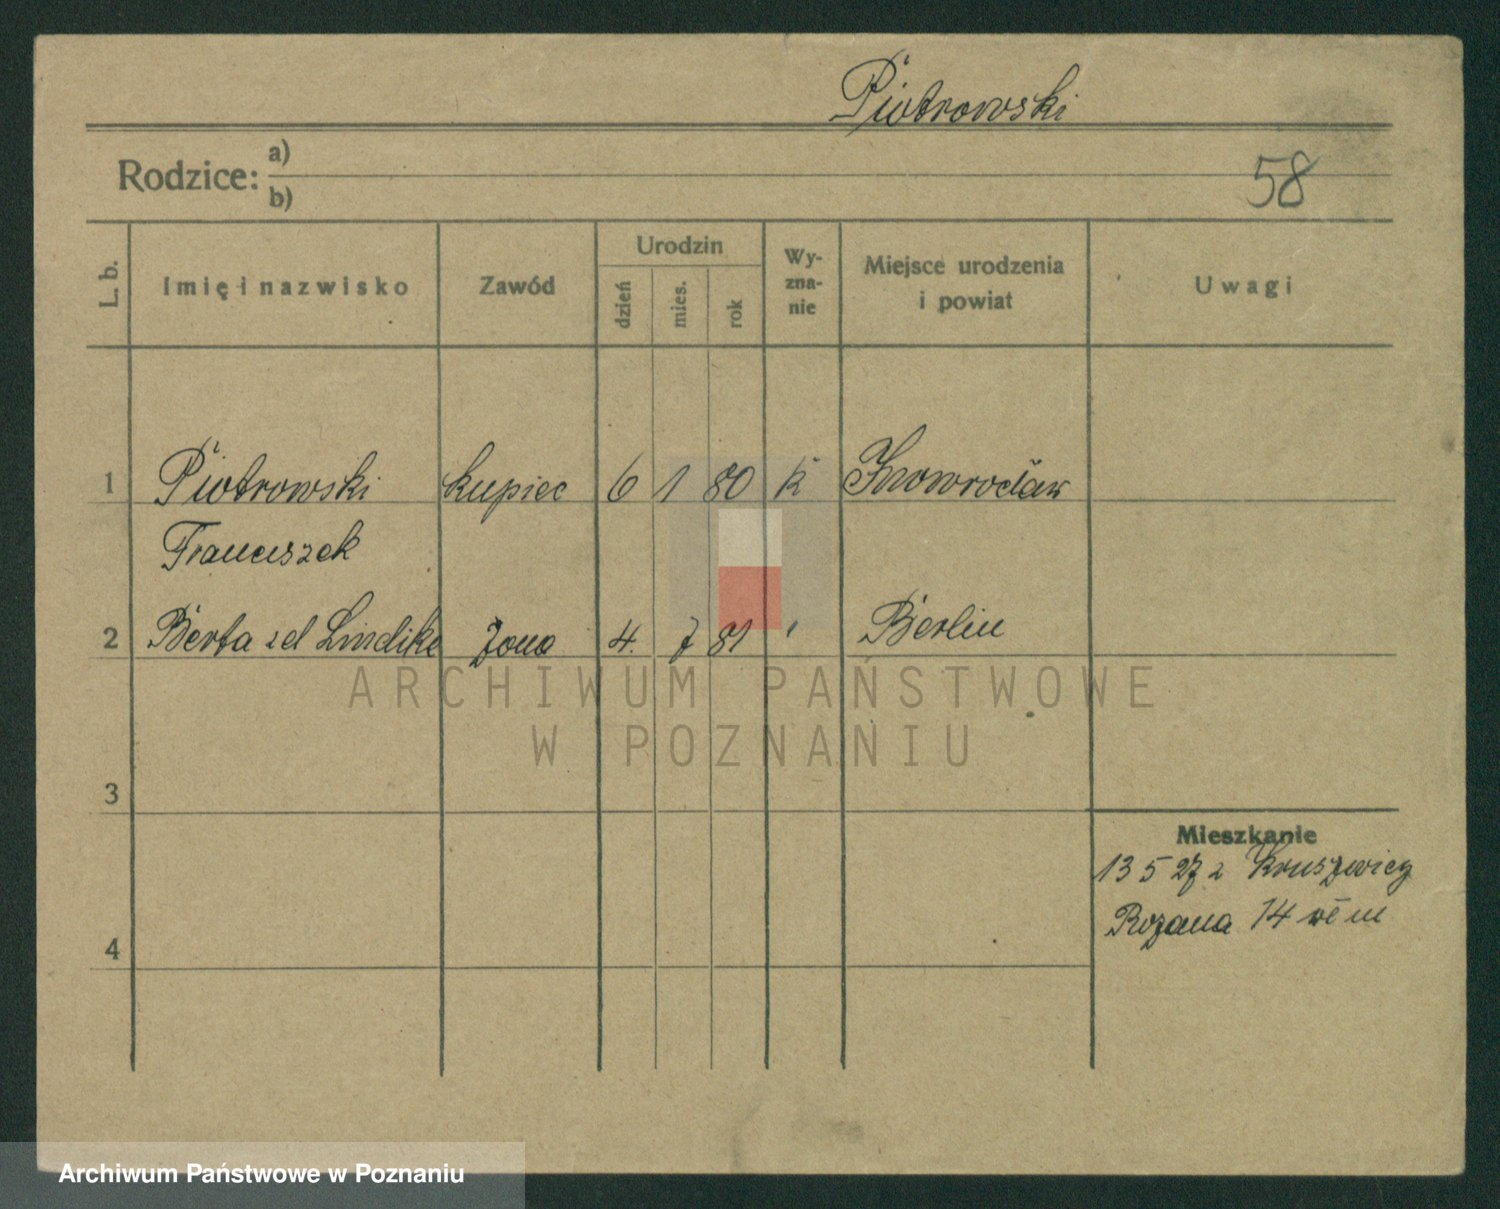 Piotrowski
Rodzice: a)
b)
58
L. b.
Imię i nazwisko
Zawód
Urodzin
dzień
mies.
rok
Wy-
zna-
nie
Miejsce urodzenia
i powiat
Uwagi
1 Piotrowski kupiec 6 1 80 k Inowrocław
Franciszek
2 Berta zd Lindike żona 4. 7 81 Berlin
ARCHIWUM PAŃSTWOWE
W POZNANIU
3
Mieszkanie
13 5 27 z Kruszwicy
4
Rozana 14
Archiwum Państwowe w Poznaniu